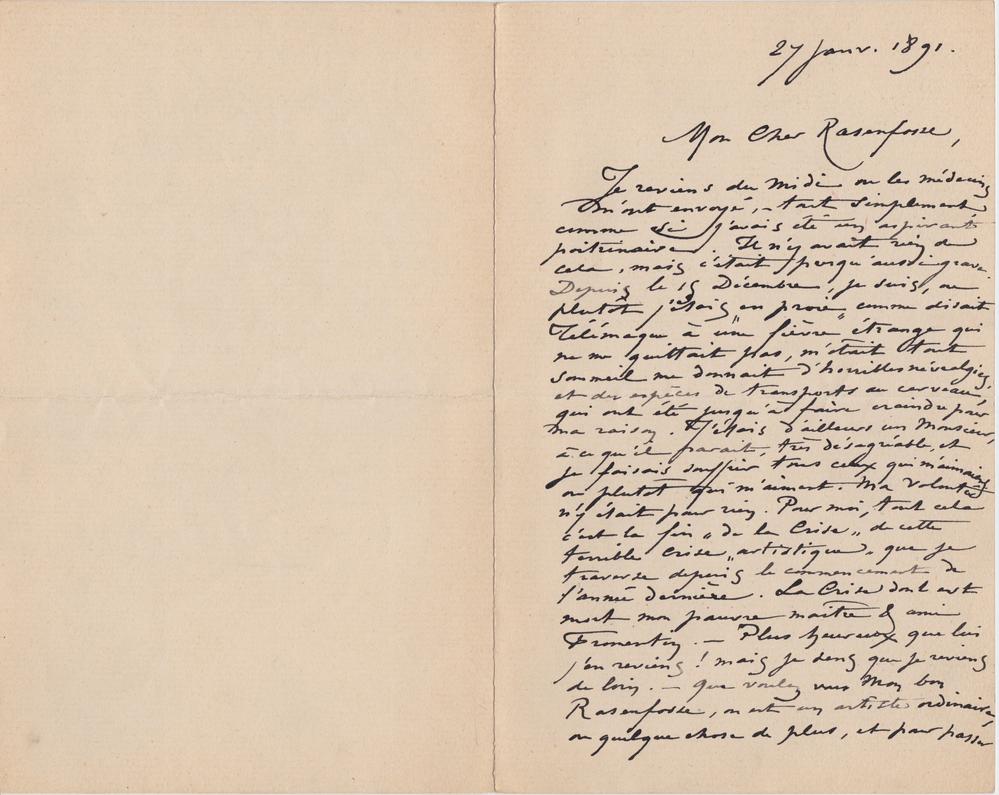 27 Janv. 1891.
Mon Cher Rasenfosse,
Je reviens du Midi ou les médecins
m'ont envoyé, – tout simplement
comme si j'avais été un aspirant
poitrinaire. Il n'y avait rien de
cela, mais c'était presqu'aussi grave.
Depuis le 15 Décembre, je suis, ou
plutôt j'étais en proie, comme disait
Télémaque à "une fièvre" étrange qui
ne me quittait pas, m'ôtait tout
sommeil me donnait d'horribles névralgies,
et des espèces de transports au cerveau,
qui ont été jusqu'à faire craindre pour
ma raison. J'étais d'ailleurs un Monsieur,
à ce qu'il parait, très désagréable, et
je faisais souffrir tous ceux qui m'aimaient
ou plutôt qui m'aiment. Ma volonté
n'y était pour rien. Pour moi, tout cela
c'est la fin "de la Crise" de cette
terrible Crise "artistique" que je
traverse depuis le commencement de
l'année dernière. La Crise dont est
mort mon pauvre maître & ami
Fromentin. – Plus heureux que lui
j'en reviens ! mais je sens que je reviens
de loin. – Que voulez vous Mon bon
Rasenfosse, on est un artiste ordinaire,
ou quelque chose de plus, et pour passer